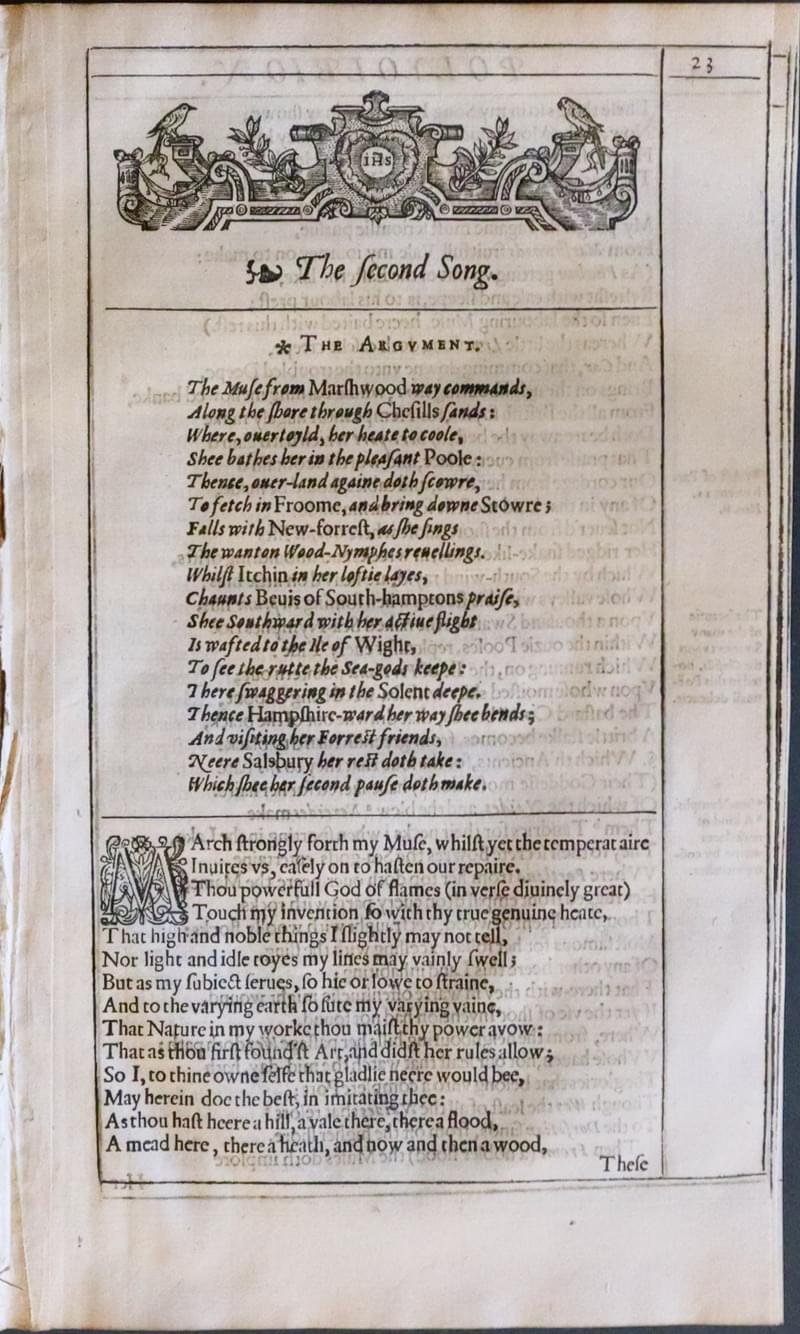 23
IHS
The ſecond Song.
* THE ARGVMENT.
The Muſe from Marſhwood way commands,
Along the ſhore through Cheſills ſands:
Where, ouertoyld, her heate to coole,
Shee bathes her in the pleaſant Poole:
Thence, ouer-land againe doth ſcowre,
To fetch in Froome, and bring downe Stówre;
Falls with New-forreſt, as ſhe ſings
The wanton Wood-Nymphes reuellings.
Whilſt Itchin in her loftie layes,
Chaunts Beuis of South-hamptons praiſe,
Shee Southward with her actiue flight
Is wafted to the Ile of Wight,
To ſee the rutte the Sea-gods keepe:
There ſwaggering in the Solent deepe.
Thence Hampſhire-ward her way ſhee bends;
And viſiting her Forreſt friends,
Neere Salsbury her reſt doth take:
Which ſhee her ſecond pauſe doth make.
MArch ſtrongly forth my Muſe, whilſt yet the temperat aire
Inuites vs, eaſely on to haſten our repaire.
Thou powerfull God of flames (in verſe diuinely great)
Touch my invention ſo with thy true genuine heate,
That high and noble things I ſlightly may not tell,
Nor light and idle toyes my lines may vainly ſwell;
But as my ſubiect ſerues, ſo hie or lowe to ſtraine,
And to the varying earth ſo ſute my varying vaine,
That Nature in my worke thou maiſt thy power avow:
That as thou firſt found'ſt Art, and didſt her rules allow;
So I, to thine owne ſelfe that gladlie neere would bee,
May herein doe the beſt, in imitating thee:
As thou haſt heere a hill, a vale there, there a flood,
A mead here, there a heath, and now and then a wood,
Theſe